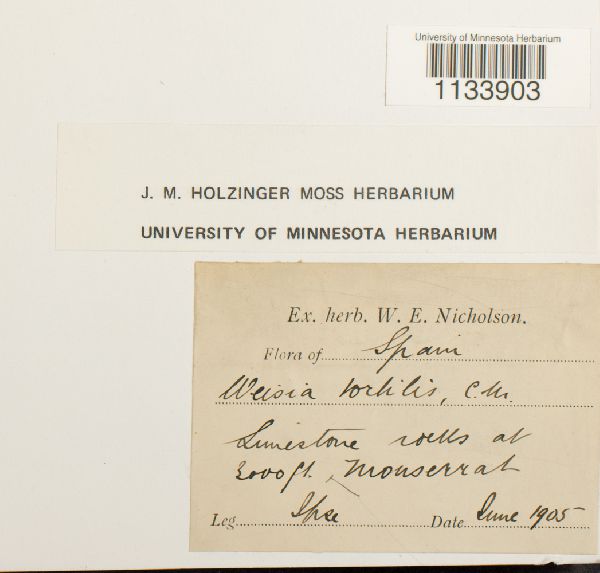 University of Minnesota Herbarium
1133903
J. M. HOLZINGER MOSS HERBARIUM
UNIVERSITY OF MINNESOTA HERBARIUM
Ex. herb. W. E. Nicholson.
Flora of Spain
Weisia tortilis, C.M.
Limestone rocks at
3000 ft. Monserrat
Leg. Ipse Date June 1905